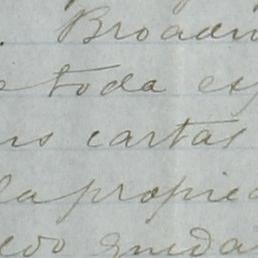 . Broadw
e toda es
us cartas
la propied
edo queda